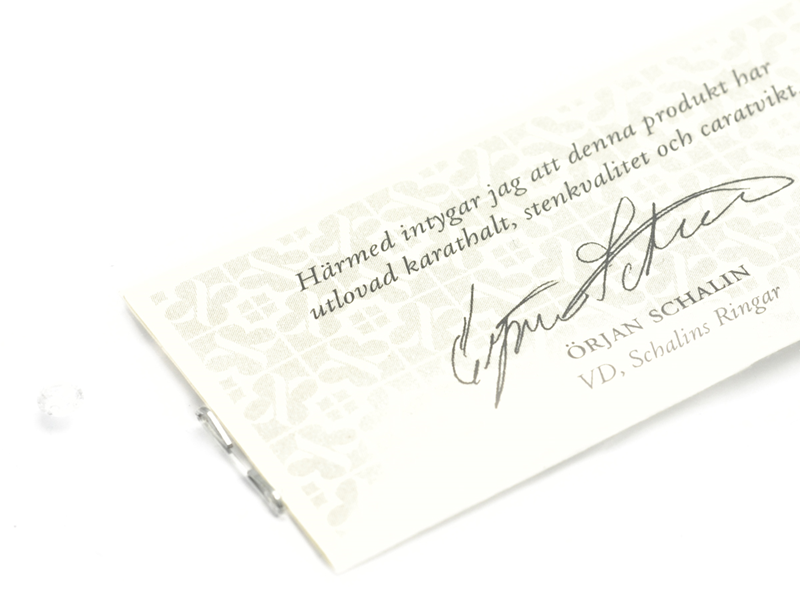 Härmed intygar jag att denna produkt har
utlovad karathalt, stenkvalitet och caratvikt.
Örjan Schalin
ÖRJAN SCHALIN
VD, Schalins Ringar